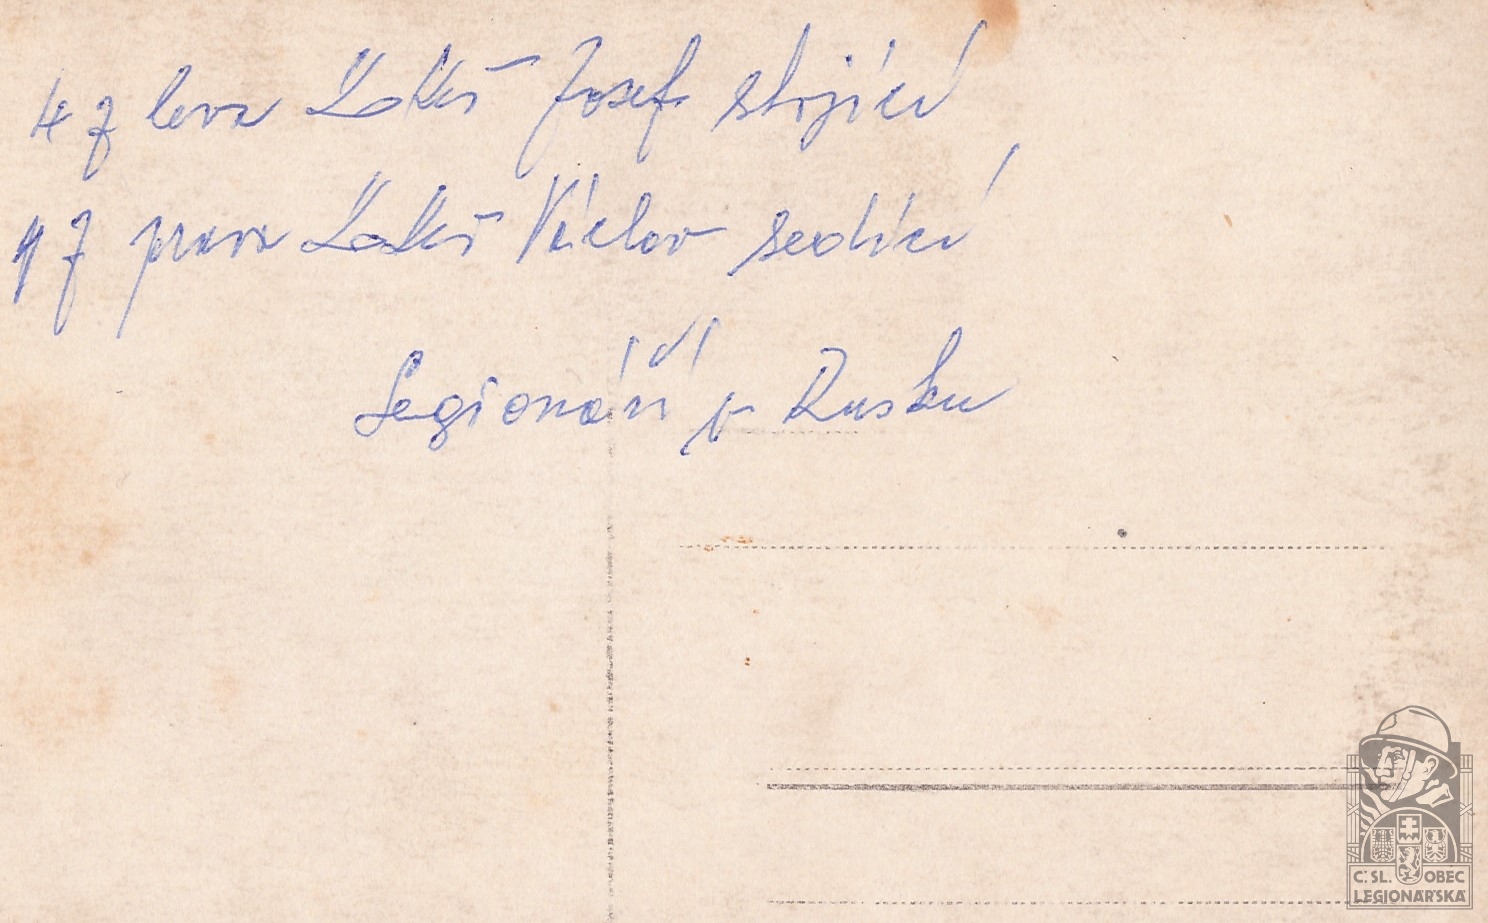 4 z leva Žákš Josef stojící
1 z prava Žákš Václav sedící
Legionáři v Rusku
Č. SL. OBEC
LEGIONÁŘSKÁ